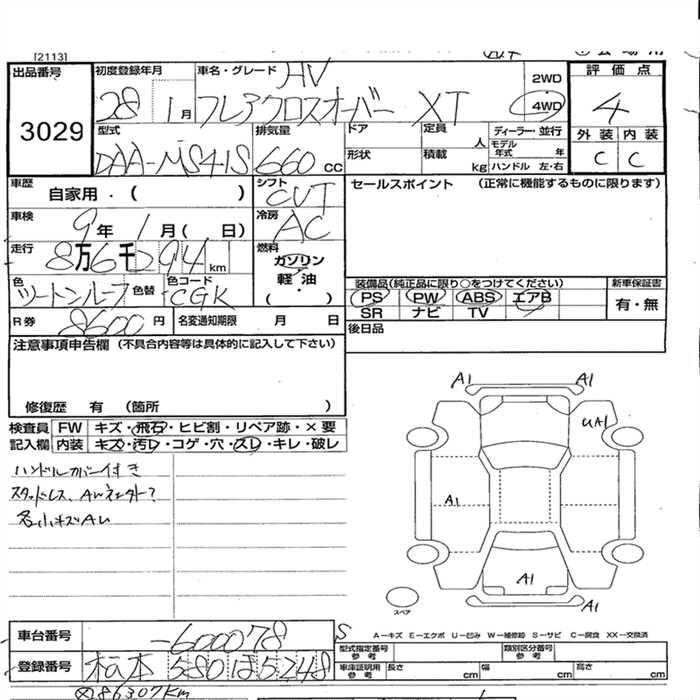 [2113]
出品番号 初度登録年月 車名・グレード HV 2WD 評価点
3029 28 1月 フレアクロスオーバー XT 4WD 4
型式 排気量 ドア 定員 人 ディーラー・並行 外装 内装
DAA-MS41S 660cc 形状 積載 kg モデル年式 年 ハンドル 左・右 C C
車歴 自家用・( ) シフト CVT セールスポイント (正常に機能するものに限ります)
車検 9年1月( 日) 冷房 AC
走行 8万6千294km 燃料 ガソリン
軽油
( )
色 ツートンルーフ 色替 色コード CGK 装備品(純正品に限り○をつけてください) 新車保証書
PS PW ABS エアB 有・無
R券 8600円 名変通知期限 月 日 SR ナビ TV
後日品
注意事項申告欄 (不具合内容等は具体的に記入して下さい)
修復歴 有 (箇所 )
検査員 FW キズ・飛石・ヒビ割・リペア跡・×要
記入欄 内装 キズ・汚レ・コゲ・穴・スレ・キレ・破レ
ハンドルカバー付き
スタッドレス、AWネット?
各小キズAレ
A1 A1
UA1
A1
A1
A1 A1
スペア
A-キズ E-エクボ U-凹み W-補修跡 S-サビ C-腐食 XX-交換済
車台番号 -600078 S 型式指定番号 参考 類別区分番号 参考
登録番号 580 ほ 5248 車庫証明用 参考 長さ cm 幅 cm 高さ cm
86307km